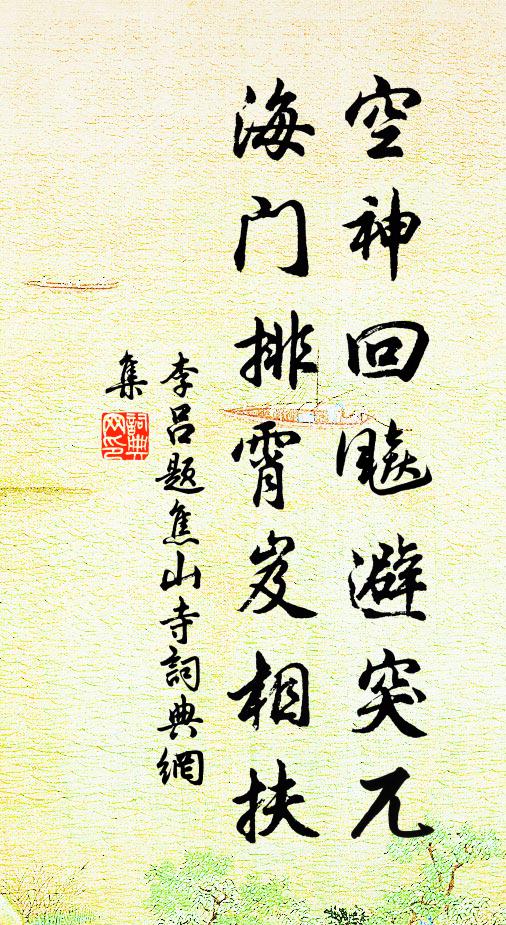 空神回飚避突兀
海门排霄岌相扶
李吕题焦山寺詞典網
集
詞典
网印